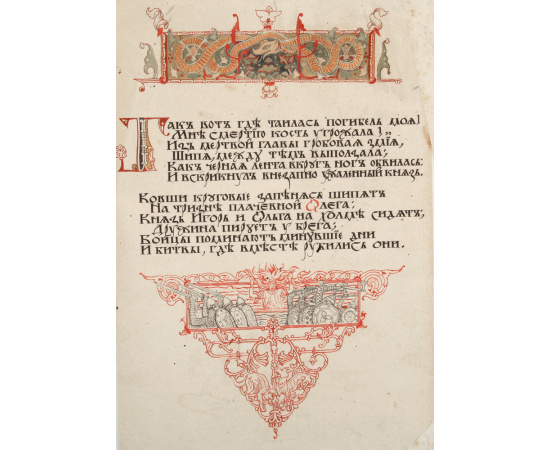 Такъ вотъ гдѣ таилась погибель моя!
Мнѣ смертію кость угрожала!„
Изъ мертвой главы гробовая змія,
Шипя, между тѣмъ выползала;
Какъ черная лента вкругъ ногъ обвилась:
И вскрикнулъ внезапно ужаленный князь.
Ковши круговые запѣнясь шипятъ
На тризнѣ плачевной Олега;
Князь Игорь и Ольга на холмѣ сидятъ;
Дружина пируетъ у брега;
Бойцы поминаютъ минувшіе дни
И битвы, гдѣ вмѣстѣ рубились они.